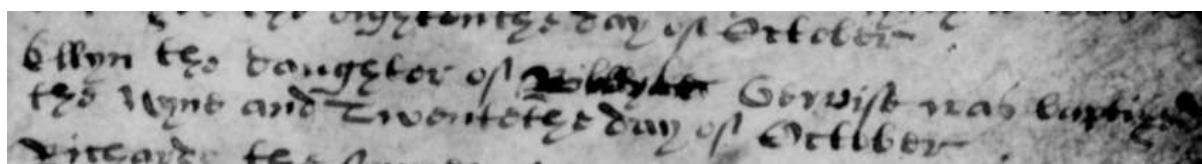 the eightenthe day of October
Ellyn the daughter of Gervise was baptized
the Nyne and Twentethe day of October
Richarde the